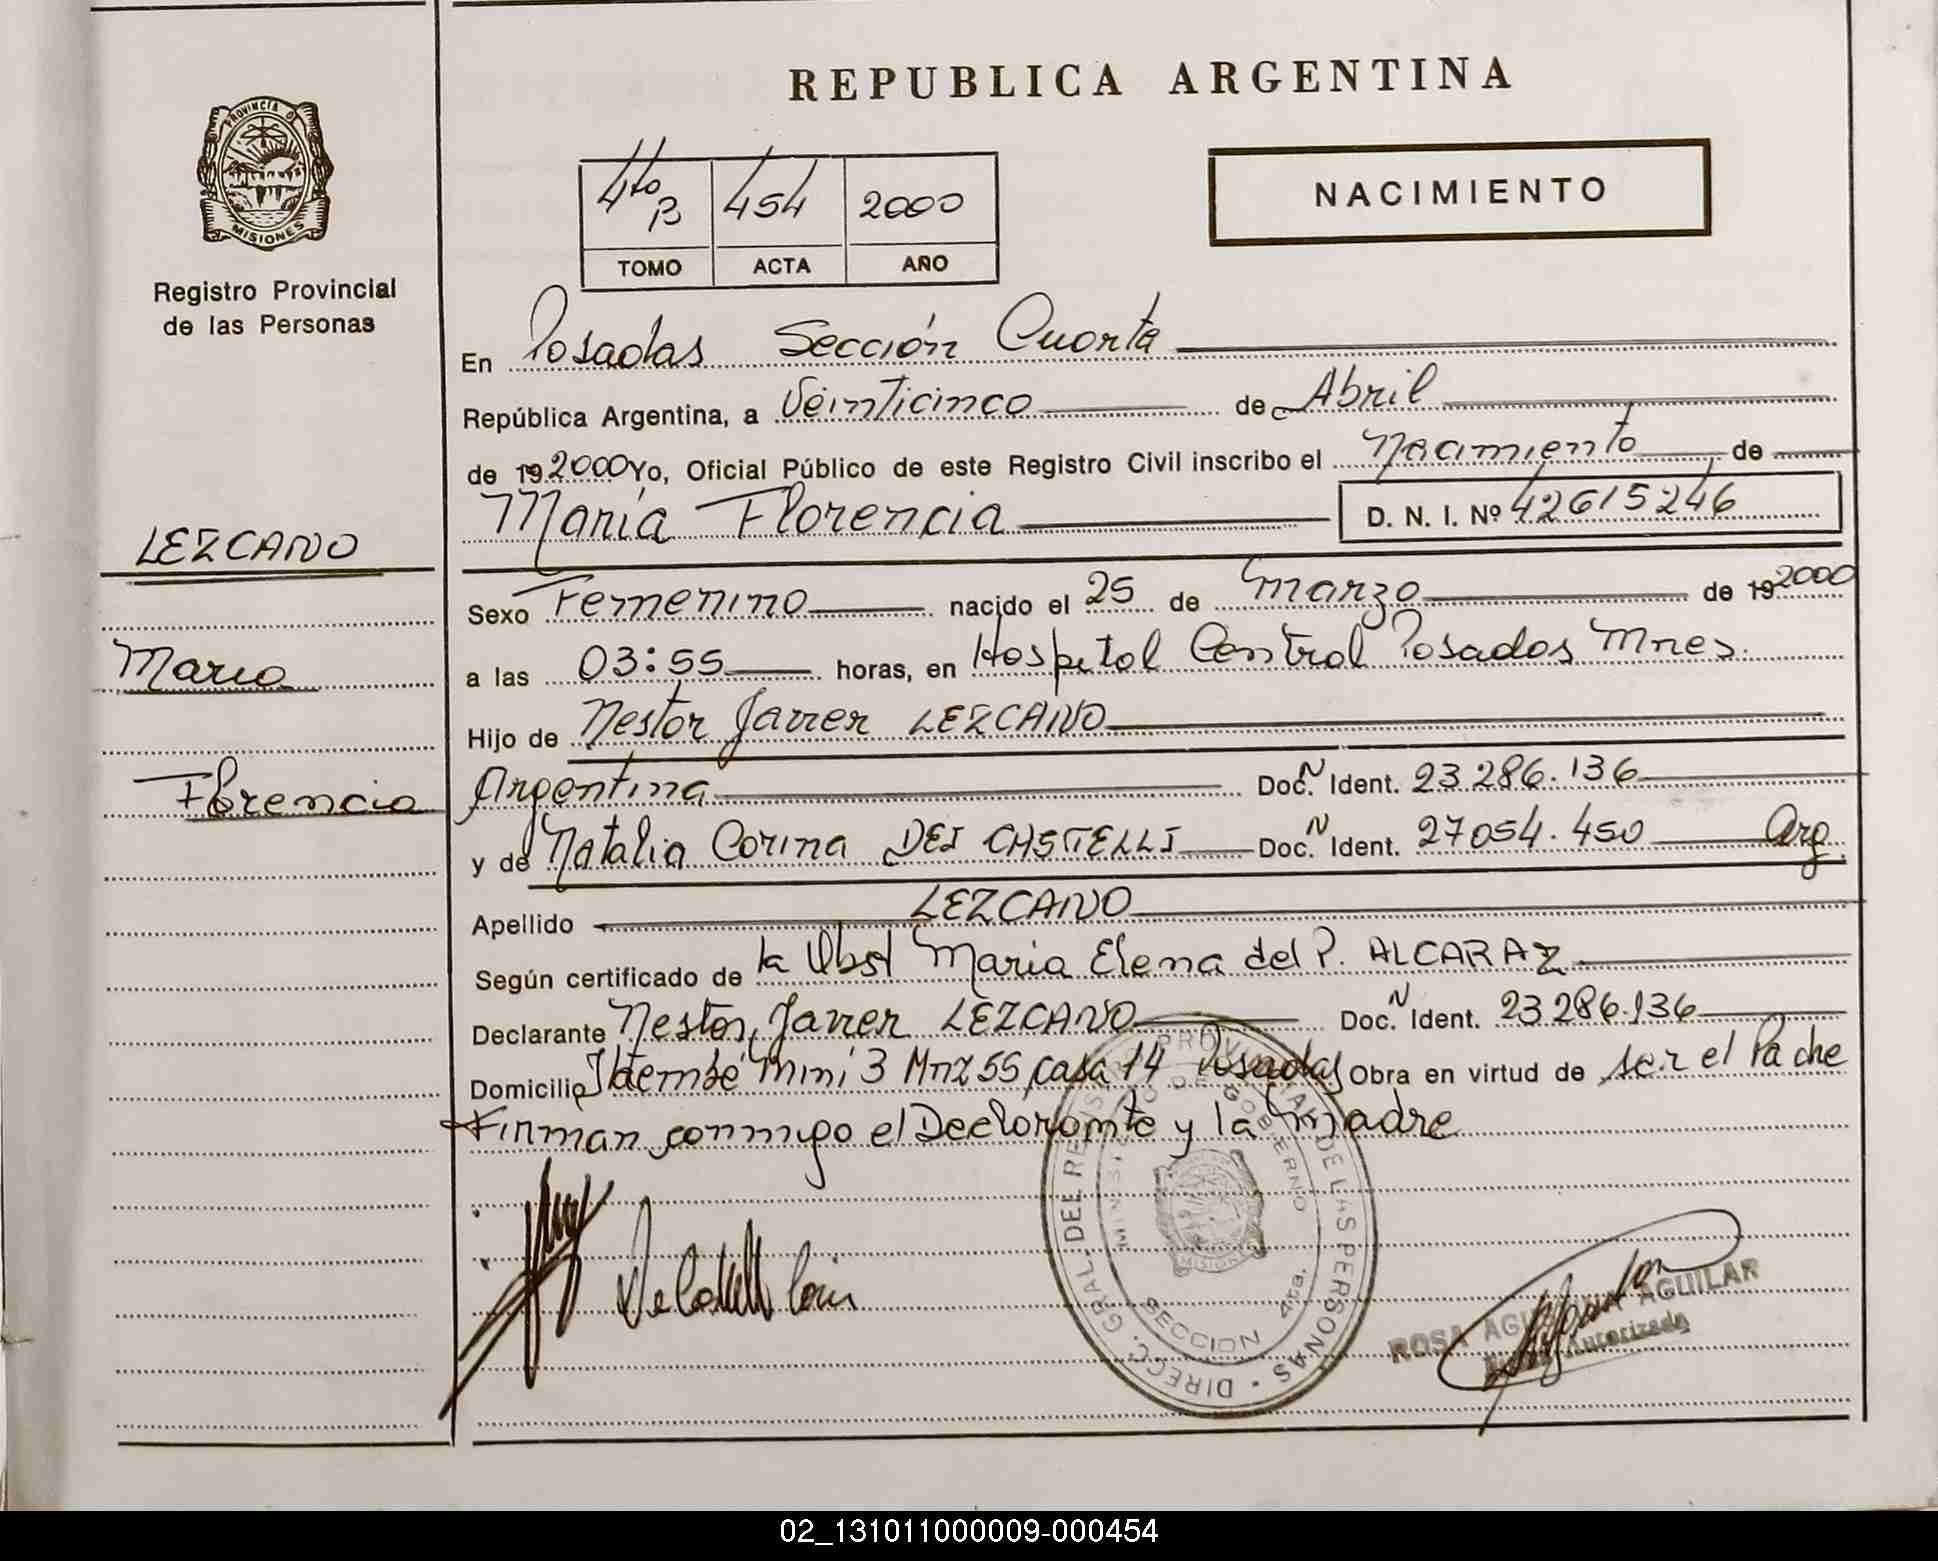 REPUBLICA ARGENTINA
PROVINCIA DE
MISIONES
Registro Provincial
de las Personas
4to B 454 2000
TOMO ACTA AÑO
NACIMIENTO
En Posadas Sección Cuarta
República Argentina, a Veinticinco de Abril
de 19 2000 Yo, Oficial Público de este Registro Civil inscribo el Nacimiento de
María Florencia D. N. I. Nº 42615246
LEZCANO
Sexo Femenino nacido el 25 de Marzo de 19 2000
Maria
a las 03:55 horas, en Hospital Central Posadas Mnes.
Hijo de Nestor Javier LEZCANO
Florencia
Argentina Doc. N Ident. 23.286.136
y de Natalia Corina DEI CASTELLI Doc. N Ident. 27054.450 Arg.
Apellido LEZCANO
Según certificado de la Obst Maria Elena del P. ALCARAZ
Declarante Nestor Javier LEZCANO Doc. N Ident. 23286.136
Domicilio Itaembé Mini 3 Mnz 55 casa 14 Posadas Obra en virtud de ser el Padre
Firman conmigo el Declarante y la Madre
DIRECC. GRAL. DEL REGISTRO PROVINCIAL DE LAS PERSONAS
MINISTERIO DE GOBIERNO
MISIONES
SECCION 4ta.
ROSA AGUILAR
Autorizado
02_131011000009-000454